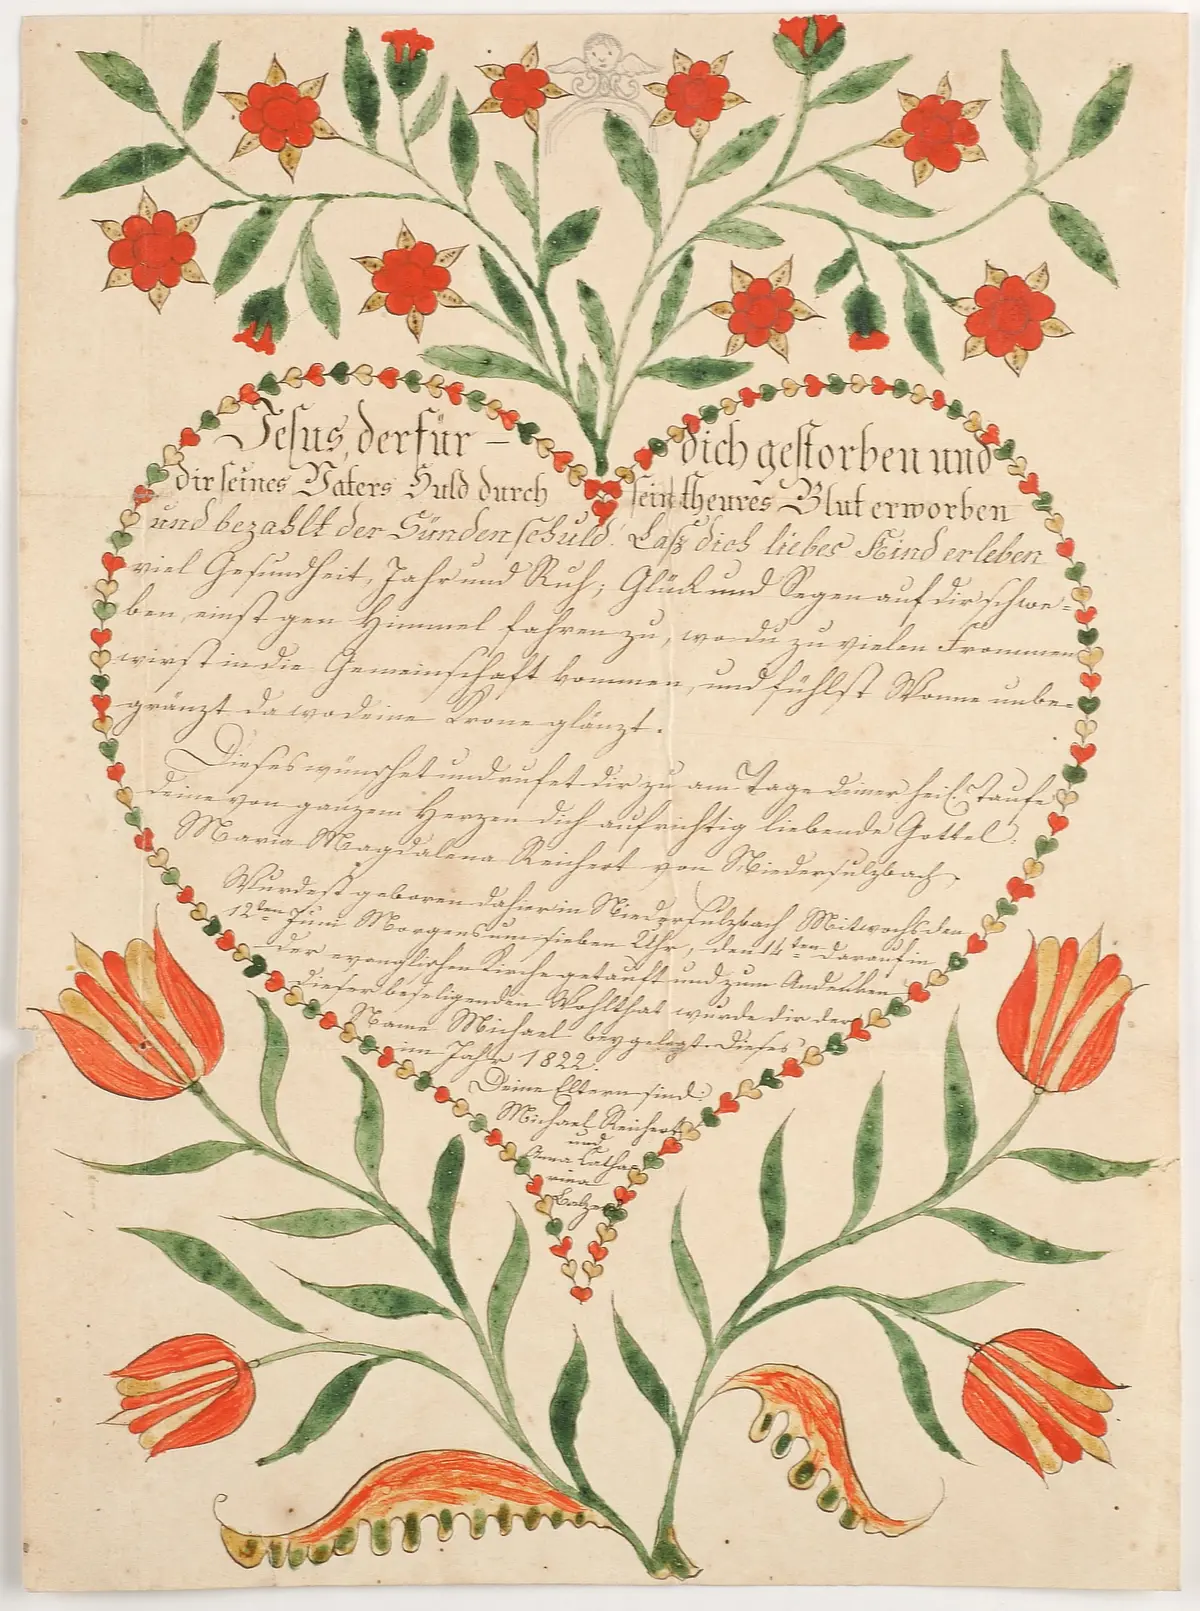 Jesus, der für – dich gestorben und
dir seines Vaters Huld durch sein theures Blut erworben
und bezahlt der Sünden schuld! Laß dich liebes Kind erleben
viel Gesundheit, Jahr und Ruh; Glück und Segen auf dir schwe=
ben, einst gen Himmel fahren zu, wo du zu vielen Frommen
wirst in die Gemeinschaft kommen, und fühlst Wonne unbe=
gränzt da wo deine Crone glänzt.
Dieses wünschet und rufet dir zu am Tage deiner heil. Taufe
deine von ganzem Herzen dich aufrichtig liebende Gottel:
Maria Magdalena Reichert von Niedersulzbach.
Wurdest geboren dahier in Niedersulzbach Mitwochs den
12ten Juni Morgens um sieben Uhr, den 14ten darauf in
der evanglischen Kirche getauft und zum Andenken
dieser beseligenden Wohlthat wurde dir der
Name Michael beygelegt. Dieses
im Jahr 1822.
Deine Eltern sind:
Michael Reichert
und
Anna Catha=
rina
Balzer